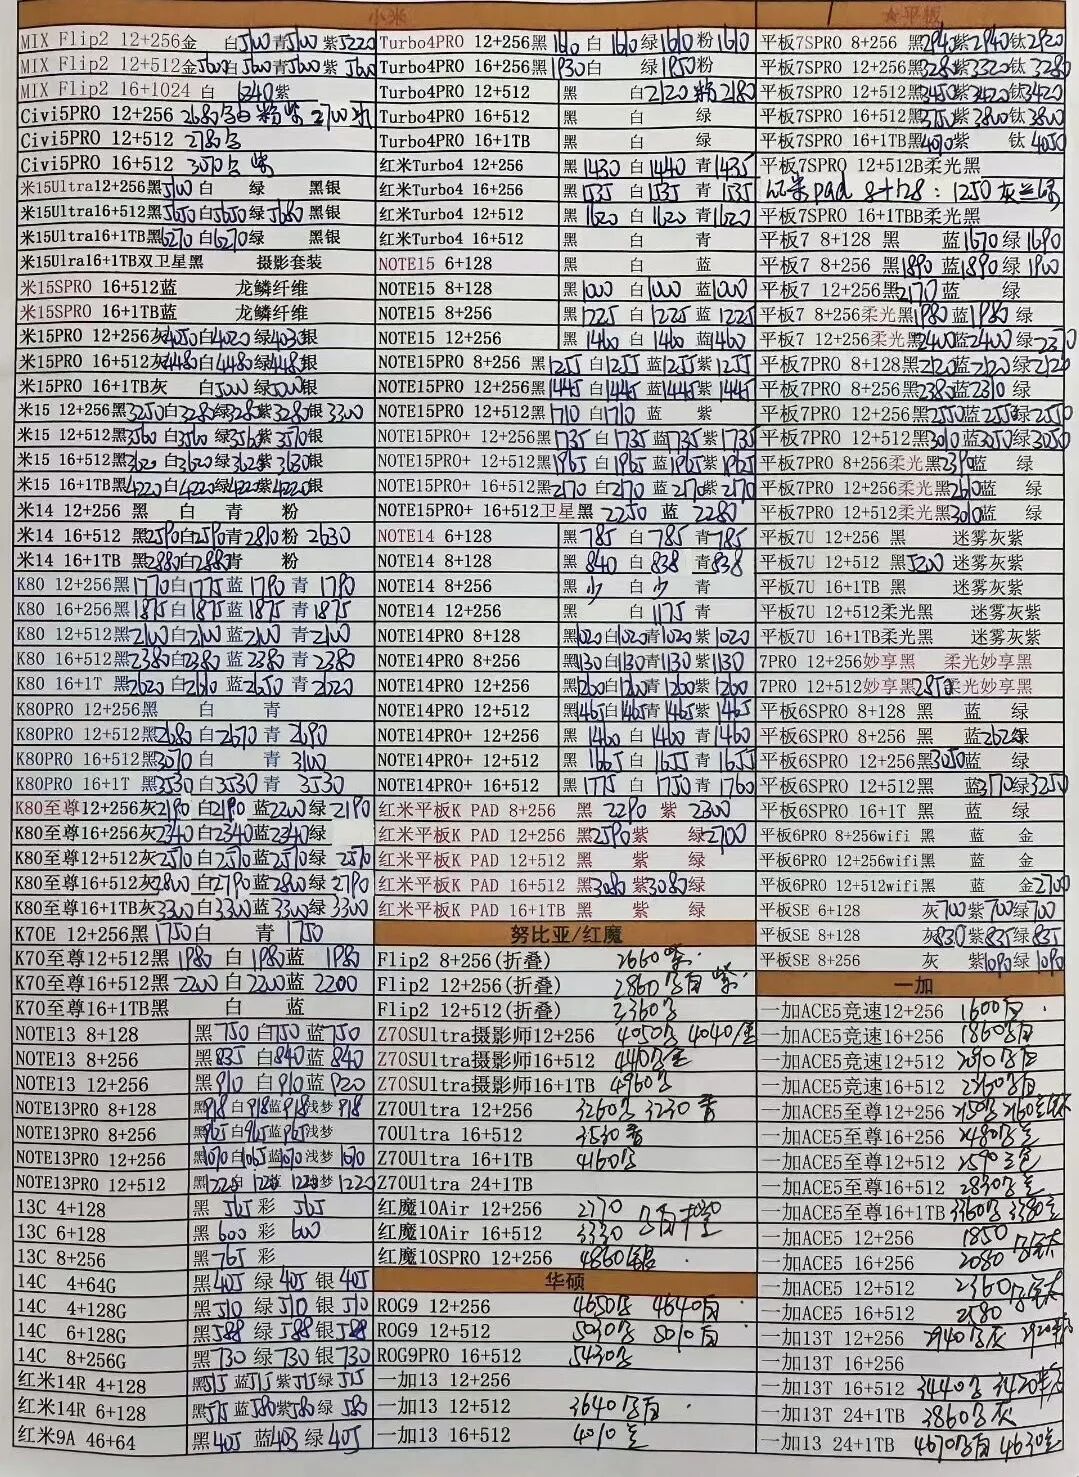 小米
MIX Flip2 12+256金 白5100青5100紫5220
MIX Flip2 12+512金5600白5600青5600紫5600
MIX Flip2 16+1024 白 6240紫
Civi5PRO 12+256 2680 白 粉 紫 2700
Civi5PRO 12+512 2780
Civi5PRO 16+512 3050 白 紫
米15Ultra12+256黑5100白 绿 黑银
米15Ultra16+512黑5650白5650绿5680黑银
米15Ultra16+1TB黑6270白6270绿 黑银
米15Ulra16+1TB双卫星黑 摄影套装
米15SPRO 16+512蓝 龙鳞纤维
米15SPRO 16+1TB蓝 龙鳞纤维
米15PRO 12+256灰4050白4020绿4030银
米15PRO 16+512灰4480白4480绿4480银
米15PRO 16+1TB灰 白5000绿5000银
米15 12+256黑3250白3280绿3280紫3280银 3300
米15 12+512黑3560白3560绿3560紫3570银
米15 16+512黑3620白3620绿3620紫3630银
米15 16+1TB黑4220白4220绿4220紫4220银
米14 12+256 黑 白 青 粉
米14 16+512 黑2590白2590青2810粉 2630
米14 16+1TB 黑2880白2880青 粉
K80 12+256黑1770白1775蓝 1790 青 1790
K80 16+256黑1875白1875蓝 1875 青 1875
K80 12+512黑2100白2100蓝 2100 青 2100
K80 16+512黑2380白2380蓝 2380 青 2380
K80 16+1T 黑2620白2610蓝 2650 青 2620
K80PRO 12+256黑 白 青
K80PRO 12+512黑2680白2670 青 2690
K80PRO 16+512黑3070白 青 3100
K80PRO 16+1T 黑3530白3530 青 3530
K80至尊12+256灰2190白2190蓝2200绿 2190
K80至尊16+256灰2340白2340蓝2340绿
K80至尊12+512灰2570白2570蓝2570绿 2570
K80至尊16+512灰2800白2790蓝2800绿 2790
K80至尊16+1TB灰3300白3300蓝3300绿 3300
K70E 12+256黑 1750白 青 1750
K70至尊12+512黑 1980 白 1980 蓝 1980
K70至尊16+512黑 2200 白2200蓝 2200
K70至尊16+1TB黑 白 蓝
NOTE13 8+128 黑 750 白750 蓝 750
NOTE13 8+256 黑 835 白 840 蓝 840
NOTE13 12+256 黑 910 白 910 蓝 920
NOTE13PRO 8+128 黑918白918蓝918浅梦 918
NOTE13PRO 8+256 黑965白965蓝965浅梦
NOTE13PRO 12+256 黑1070白1065蓝1070浅梦 1070
NOTE13PRO 12+512 黑1220白1220蓝1220浅梦1220
13C 4+128 黑 565 彩 565
13C 6+128 黑 600 彩 600
13C 8+256 黑 765 彩
14C 4+64G 黑 405 绿 405 银 405
14C 4+128G 黑 510 绿 510 银 510
14C 6+128G 黑 588 绿 588 银 588
14C 8+256G 黑 730 绿 730 银 730
红米14R 4+128 黑515 蓝515紫515绿515
红米14R 6+128 黑575 蓝580紫580绿 580
红米9A 46+64 黑 405 蓝 403 绿 405
Turbo4PRO 12+256黑 1610 白 1610 绿1610 粉 1610
Turbo4PRO 16+256黑1930白 绿1950粉
Turbo4PRO 12+512 黑 白2120 粉 2180
Turbo4PRO 16+512 黑 白 绿
Turbo4PRO 16+1TB 黑 白 绿
红米Turbo4 12+256 黑 1430 白 1440 青 1435
红米Turbo4 16+256 黑 1535 白1535 青 1535
红米Turbo4 12+512 黑 1620 白 1620 青1620
红米Turbo4 16+512 黑 白 青
NOTE15 6+128 黑 白 蓝
NOTE15 8+128 黑 1000 白 1000 蓝1000
NOTE15 8+256 黑 1225 白 1225 蓝 1225
NOTE15 12+256 黑 1460 白 1460 蓝1460
NOTE15PRO 8+256 黑1255 白1255 蓝1255紫1255
NOTE15PRO 12+256黑1445 白1445 蓝1445紫1445
NOTE15PRO 12+512黑1710 白1710 蓝 紫
NOTE15PRO+ 12+256黑1735 白1735 蓝1735紫1735
NOTE15PRO+ 12+512黑1965 白1965 蓝1965紫1965
NOTE15PRO+ 16+512黑2170 白2170 蓝2170紫2170
NOTE15PRO+ 16+512卫星黑 2250 蓝 2280
NOTE14 6+128 黑 785 白 785 青785
NOTE14 8+128 黑 840 白 838 青838
NOTE14 8+256 黑 少 白 少 青
NOTE14 12+256 黑 白 1175 青
NOTE14PRO 8+128 黑1020白1020青1020紫1020
NOTE14PRO 8+256 黑1130白1130青1130紫1130
NOTE14PRO 12+256 黑1260白1260青1260紫1260
NOTE14PRO 12+512 黑1465白1465青1465紫1465
NOTE14PRO+ 12+256 黑 1460 白 1460 青1460
NOTE14PRO+ 12+512 黑 1655 白 1655 青 1655
NOTE14PRO+ 16+512 黑 1775 白 1750 青 1760
红米平板K PAD 8+256 黑 2290 紫 2300
红米平板K PAD 12+256 黑2590紫 绿2700
红米平板K PAD 12+512 黑 紫 绿
红米平板K PAD 16+512 黑3080紫3080绿
红米平板K PAD 16+1TB 黑 紫 绿
努比亚/红魔
Flip2 8+256(折叠) 2660 紫
Flip2 12+256(折叠) 2860 紫
Flip2 12+512(折叠) 2360
Z70SUltra摄影师12+256 4050 4040
Z70SUltra摄影师16+512 4410
Z70SUltra摄影师16+1TB 4960
Z70Ultra 12+256 3260 3230 青
70Ultra 16+512 3530 青
Z70Ultra 16+1TB 4160
Z70Ultra 24+1TB
红魔10Air 12+256 2770
红魔10Air 16+512 3330
红魔10SPRO 12+256 4860
华硕
ROG9 12+256 4650 4640白
ROG9 12+512 5030 5010白
ROG9PRO 16+512 5430
一加13 12+256
一加13 12+512 3640
一加13 16+512 4010
★平板
平板7SPRO 8+256 黑2940紫2940钛2920
平板7SPRO 12+256黑3280紫3320钛 3280
平板7SPRO 12+512黑3450紫3420钛3420
平板7SPRO 16+512黑3750紫3800钛3800
平板7SPRO 16+1TB黑4070紫 钛 4050
平板7SPRO 12+512B柔光黑
红米pad 8+128：1250 灰兰绿
平板7SPRO 16+1TBB柔光黑
平板7 8+128 黑 蓝1670绿1690
平板7 8+256 黑1890蓝1890绿 1900
平板7 12+256黑2170蓝 绿
平板7 8+256柔光黑1980蓝1980绿
平板7 12+256柔光黑2400蓝2400绿2370
平板7PRO 8+128黑2120蓝2120绿2120
平板7PRO 8+256黑2380蓝2310 绿
平板7PRO 12+256黑2550蓝2550绿2550
平板7PRO 12+512黑3010蓝3050绿3050
平板7PRO 8+256柔光黑2390蓝 绿
平板7PRO 12+256柔光黑2610蓝 绿
平板7PRO 12+512柔光黑3010蓝 绿
平板7U 12+256 黑 迷雾灰紫
平板7U 12+512 黑5200 迷雾灰紫
平板7U 16+1TB 黑 迷雾灰紫
平板7U 12+512柔光黑 迷雾灰紫
平板7U 16+1TB柔光黑 迷雾灰紫
7PRO 12+256妙享黑 柔光妙享黑
7PRO 12+512妙享黑2850柔光妙享黑
平板6SPRO 8+128 黑 蓝 绿
平板6SPRO 8+256 黑 蓝2620绿
平板6SPRO 12+256黑3050蓝 绿
平板6SPRO 12+512黑 蓝3170绿3250
平板6SPRO 16+1T 黑 蓝 绿
平板6PRO 8+256wifi 黑 蓝 金
平板6PRO 12+256wifi黑 蓝 金
平板6PRO 12+512wifi黑 蓝 金2700
平板SE 6+128 灰700紫700绿700
平板SE 8+128 灰830紫835绿835
平板SE 8+256 灰 紫1090绿1090
一加
一加ACE5竞速12+256 1600白
一加ACE5竞速16+256 1860
一加ACE5竞速12+512 2090
一加ACE5竞速16+512 2260
一加ACE5至尊12+256 2150 2160
一加ACE5至尊16+256 2480
一加ACE5至尊12+512 2590 三色
一加ACE5至尊16+512 2830
一加ACE5至尊16+1TB 3360 3380
一加ACE5 12+256 1850
一加ACE5 16+256 2080
一加ACE5 12+512 2360
一加ACE5 16+512 2580
一加13T 12+256 2940 灰 2920
一加13T 16+256
一加13T 16+512 3440 3420
一加13T 24+1TB 3860 灰
一加13 24+1TB 4670 4630